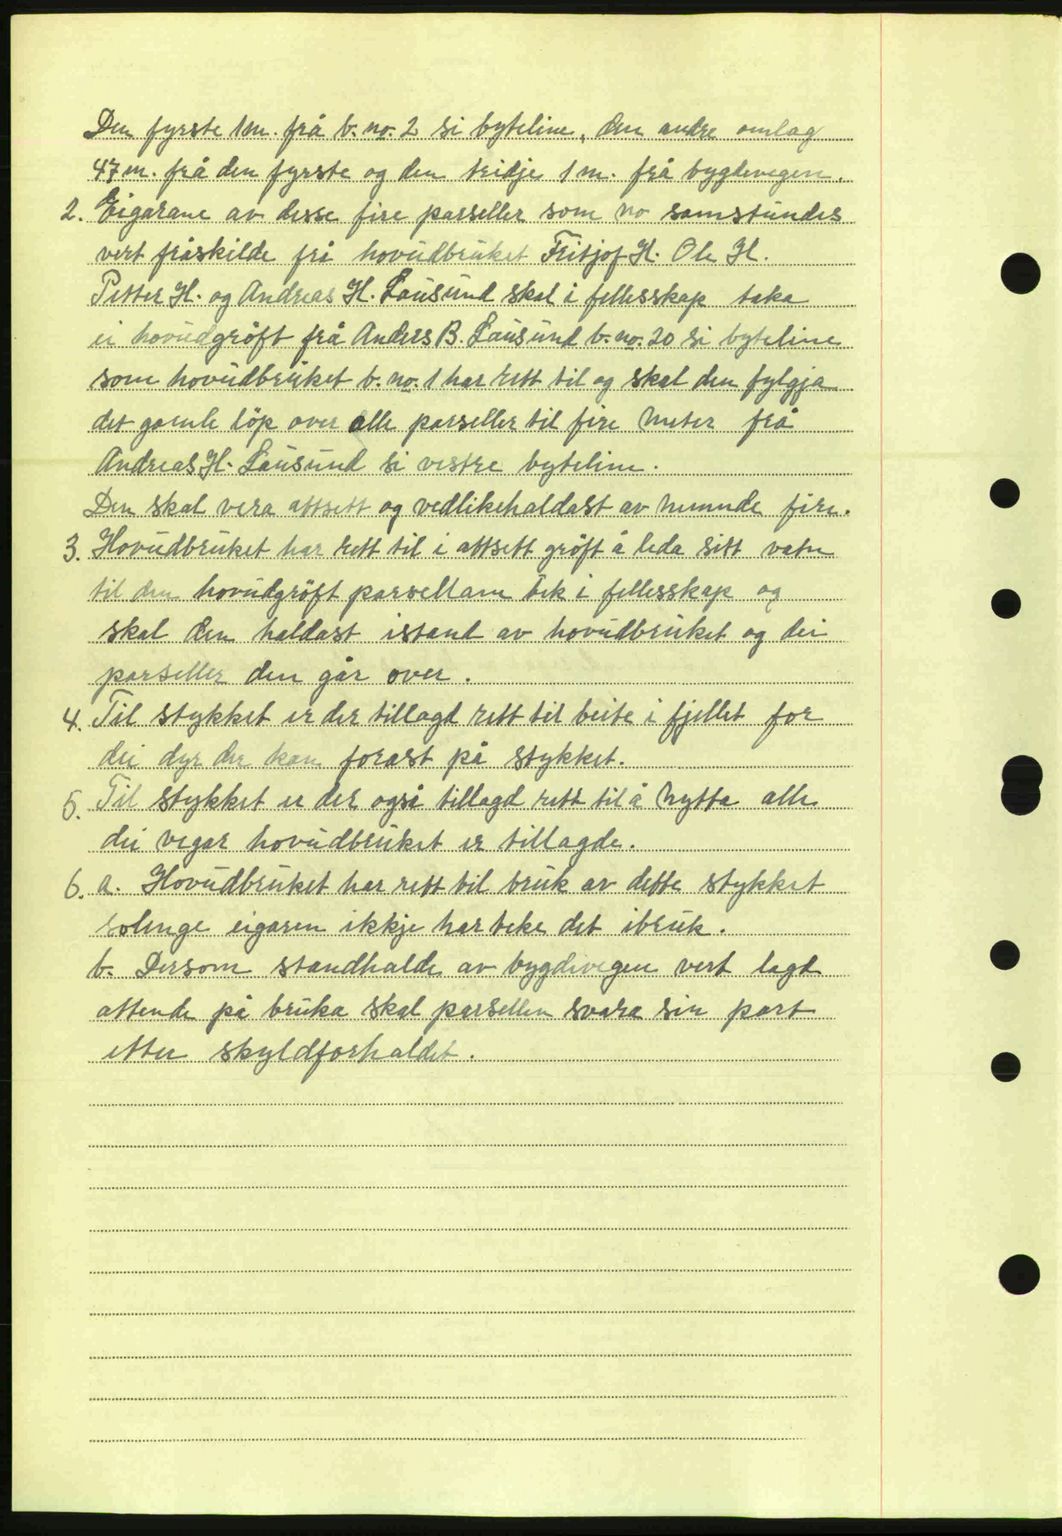 Den fyrste 1 m. frå b. no. 2 si byteline, den andre omlag
47 m. frå den fyrste og den tridje 1 m. frå bygdevegen.
2. Eigarane av desse fire parseller som no samstundes
vert fråskilde frå hovudbruket Fritjof H. Ole H.
Petter H. og Andreas H. Lausund skal i fellesskap taka
ei hovudgröft frå Anders B. Lausund b. no. 20 si byteline
som hovudbruket b. no. 1 har rett til og skal den fylgja
det gamle löp over alle parseller til fire meter frå
Andreas H. Lausund si vestre byteline.
Den skal vera attsett og vedlikehaldast av nemnde fire.
3. Hovudbruket har rett til i attsett gröft å leda sitt vatn
til den hovudgröft parsellane tek i fellesskap og
skal den haldast istand av hovudbruket og dei
parseller den går over.
4. Til stykket er der tillagd rett til beite i fjellet for
dei dyr der kan forast på stykket.
5. Til stykket er der også tillagd rett til å nytta alle
dei vegar hovudbruket er tillagde.
6. a. Hovudbruket har rett til bruk av dette stykket
solenge eigaren ikkje har teke det ibruk.
b. Dersom standhalde av bygdevegen vert lagd
attende på bruka skal parsellen svara sin part
etter skyldforhaldet.